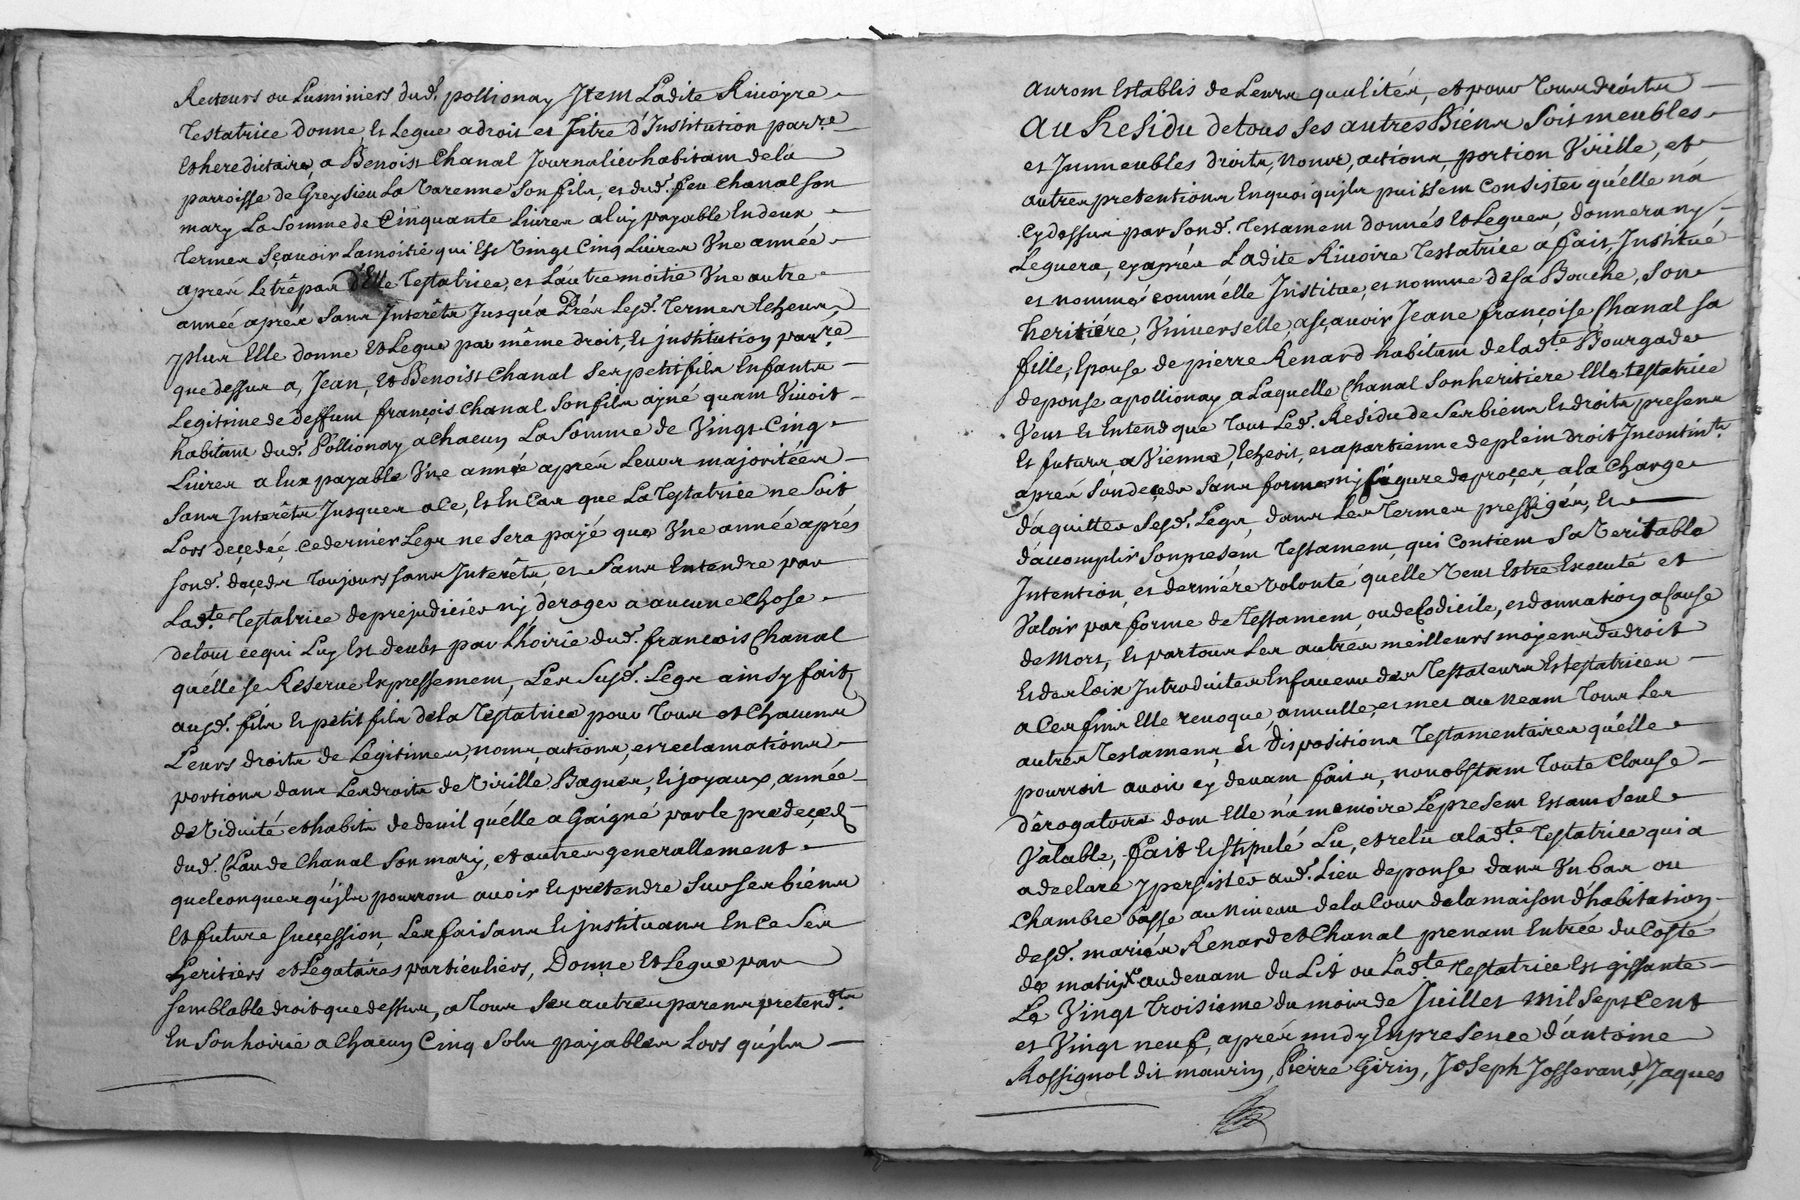 Recteurs ou Luminiers dud. pollionay Item Ladite Rivoyre
Testatrice donne et Legue a droit et Titre d'Institution par.re
et hereditaire, a Benoist Chanal Journalier habitam de la
parroisse de Greysieu La Varenne son fils, et dud. feu Chanal son
mary La somme de Cinquante Livres a luy payable En deux
Termes sçavoir La moitié qui Est Vingt Cinq Livres Vne année
aprés Le trêpas d'Elle Testatrice, et L'autre moitié Vne autre
année aprés sans Interêts Jusqu'a Prés Lesd. Termes Echeus,
yplus Elle donne et Legue par même droit, et justitution par.re
que dessus a, Jean, et Benoist Chanal ses petit fils Enfants
Legitime de deffunt françois Chanal son fils ayné quam Vivoit
habitant dud. Pollionay a Chacun La Somme de Vingt-Cinq
Livres a Eux payable Vne année aprés Leurs majoritées
sans Interêts Jusques a Ce, et En Cas que La Testatrice ne soit
Lors deçedée, ce dernier Legs ne sera payé que Vne année aprés
sond. deçeds toujours sans Interêts, et sans Entendre par
Lad.te Testatrice deprejudicier ny deroger a aucune chose
de tous ce qui Luy Est deubs par L'hoirie dud. françois Chanal
qu'elle se Reserve Expressement, Les susd. Legs ainsy fait
ausd. fils et petit fils de la Testatrice pour Tous et Chacuns
Leurs droits de Legitimes, noms, actions, et reclamations
portions dans Les droits de Virille, Bagues, et joyaux, année
de Viduité et habits de deuil qu'elle a Gaigné par le predeçed
dud. Claude Chanal son mary, et autres generallement
quelconques qu'jls pourrom avoir et pretendre sur ses biéns
et future succession, Les faisans et jnstituans En Ce Ses
heritiers et Legataires particuliers, Donne et Legue par
semblable droit que dessus, a Tous ses autres parens pretend.ts
En son hoirie a Chacun Cinq Sols payables Lors qu'jls
aurom Establis de Leurs qualités, et pour Tous droits
Au Residu de tous ses autres Biens soit meubles
et Jmmeubles droits, noms, actions portion Virille, et
autres pretentions En quoi qu'jls puissem Consister qu'elle n'a
Cy dessus par sond. Testament donnés et Legues, donnera ny
Leguera, cy aprés Ladite Rivoire Testatrice á fait, Institué
et nommé comm'elle Institue, et nomme de sa Bouche, son
heritiére, Vniverselle a sçavoir Jeane françoise Chanal sa
fille, Epouse de pierre Renard habitam de lad.te Bourgade
deponse a pollionay a Laquelle Chanal son heritiere Elle testatrice
Veut et Entend que Tout Led. Residu de ses biens et droits presens
et futurs, a Vienne, Echeoit, et apartienne de plein droit Incontin.t
aprés son deçeds sans forme ny figure de proçes, a la Charge
d'aquitter sesd. Legs, dans Les Termes pressigés, Et
d'acomplir son presem Testament, qui Contiem sa Veritable
Intention, et derniére volonté qu'elle Veut Estre Executé et
Valoir par forme de Testament, ou de Codicile, et donnation a Cause
de Mort, et par tous Les autres meilleurs moyens du droit
et des loix Introduites En faveur des Testateurs et testatrices
a Ces fins Elle revoque, annulle, et met au neam Tous Les
autres Testamens, et Dispositions Testamentaires qu'elle
pourroit avoir cy devam fait, nonobstam toute Clause
dêrogatoire dom Elle n'a memoire Le presem Estam seul
Valable, fait et stipulé Lu, et relû a lad.te Testatrice qui a
a declaré y persister aud. Lieu deponse dans Vn bas ou
chambre basse au niveau de la Cour de la maison d'habitation
desd. mariés Renard et Chanal prenam Entrée du Costé
de matin, au devam du Lit ou Lad.te Testatrice Est gissante
Le Vingt Troisiéme du mois de Juillet mil Sept Cent
et Vingt neuf, aprés midy En presence d'antoine
Rossignol dit maurin, Pierre Girin, Joseph Josserand, Jaques